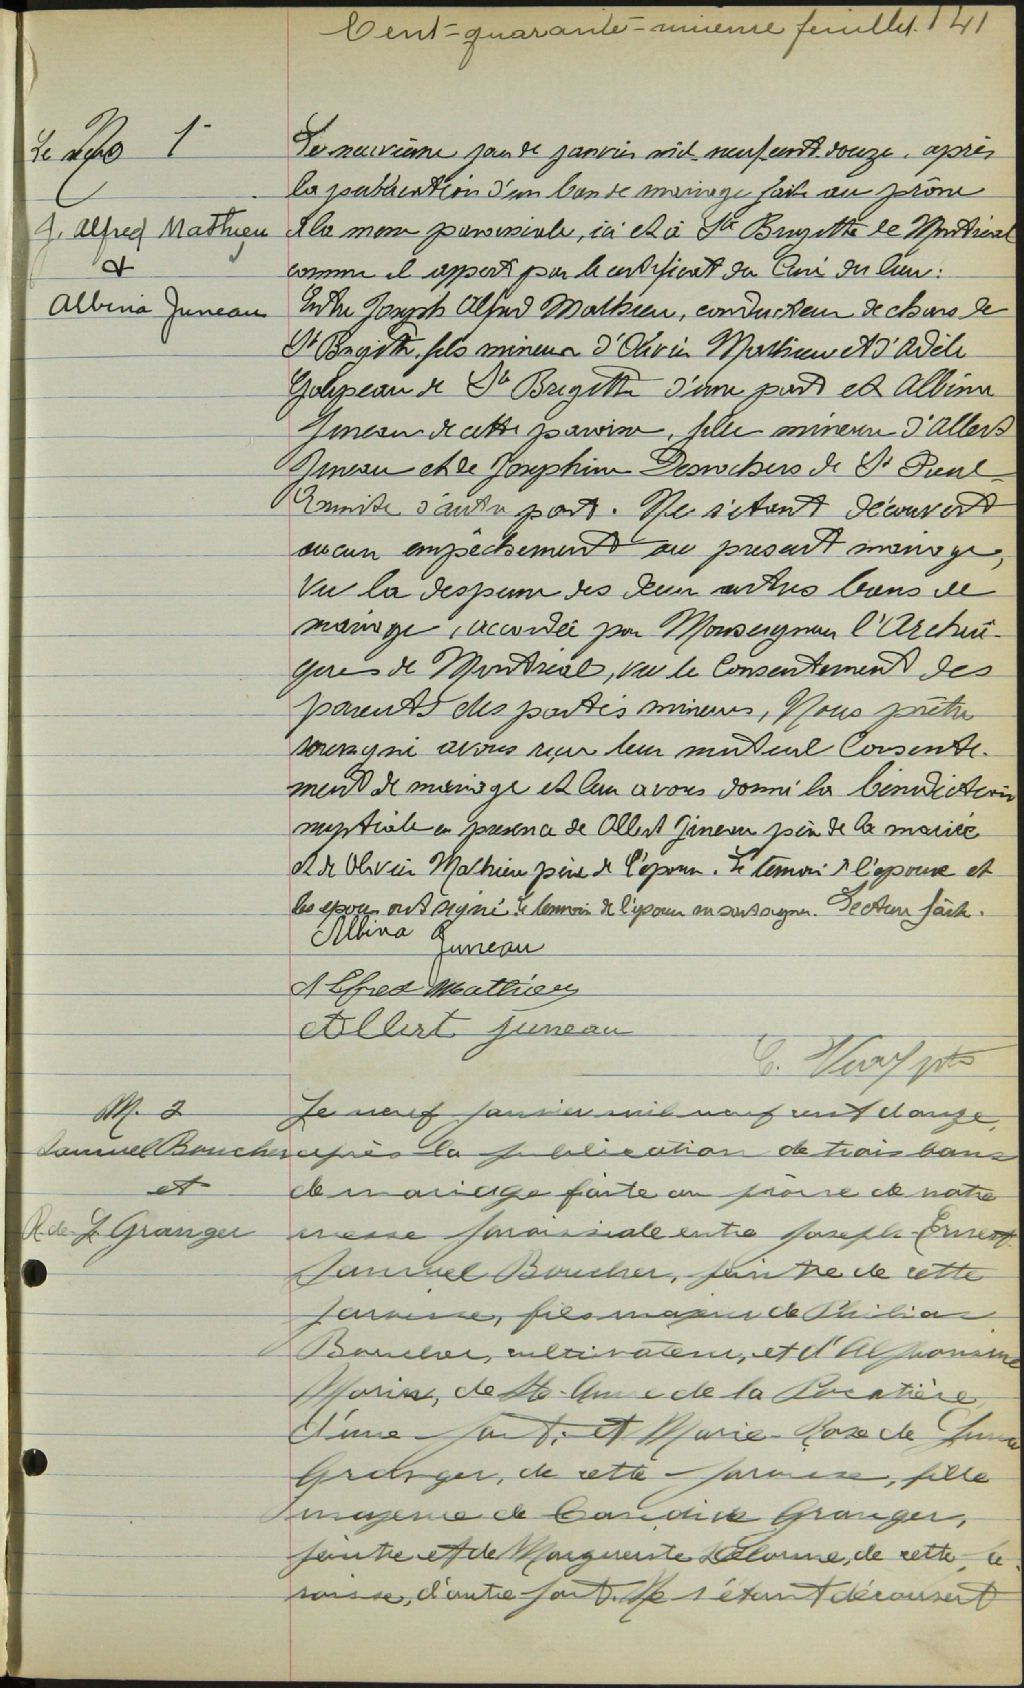 Cent-quarante-unième feuillet. 141
Le
M 1
J. Alfred Mathieu
&
Albina Juneau
Le neuvième jour de janvier mil-neuf-cent-douze, après
la publication d'un ban de mariage faite au prône
de la messe paroissiale, ici et à Ste Brigitte de Montréal
comme il appert par le certificat du Curé du lieu:
Entre Joseph Alfred Mathieu, conducteur de chars de
St Brigitte, fils mineur d'Olivier Mathieu et d'Adèle
de Ste Brigitte d'une part et Albina
Juneau de cette paroisse, fille mineure d'Albert
Juneau et de Josephine Desrochers de St Paul
Ermite d'autre part. Ne s'étant découvert
aucun empêchement au présent mariage,
Vu la dispense des deux autres bans de
mariage, accordée par Monseigneur l'Archevê-
que de Montréal, vu le Consentement des
parents des parties mineures, Nous prêtre
soussigné avons reçu leur mutuel Consente-
ment de mariage et leur avons donné la bénédiction
nuptiale en présence de Albert Juneau père de la mariée
et de Olivier Mathieu père de l'époux. Le témoin de l'épouse et
les époux ont signé. Le témoin de l'époux ne sait signer. Lecture faite.
Albina Juneau
Alfred Mathieu
Albert Juneau
C. ptre
M. 2
Samuel Boucher
et
R. de L Granger
Le neuf janvier mil neuf cent douze,
après la publication de trois bans
de mariage faite au prône de notre
messe paroissiale entre Joseph-Ernest
Samuel Boucher, peintre de cette
paroisse, fils majeur de Philias
Boucher, cultivateur, et d'Alphonsine
Morin, de Ste-Anne de la Pocatière,
d'une part; et Marie-Rose de Lima
Granger, de cette paroisse, fille
majeure de Candide Granger,
peintre et de Marguerite Delorme, de cette pa-
roisse, d'autre part. Ne s'étant découvert